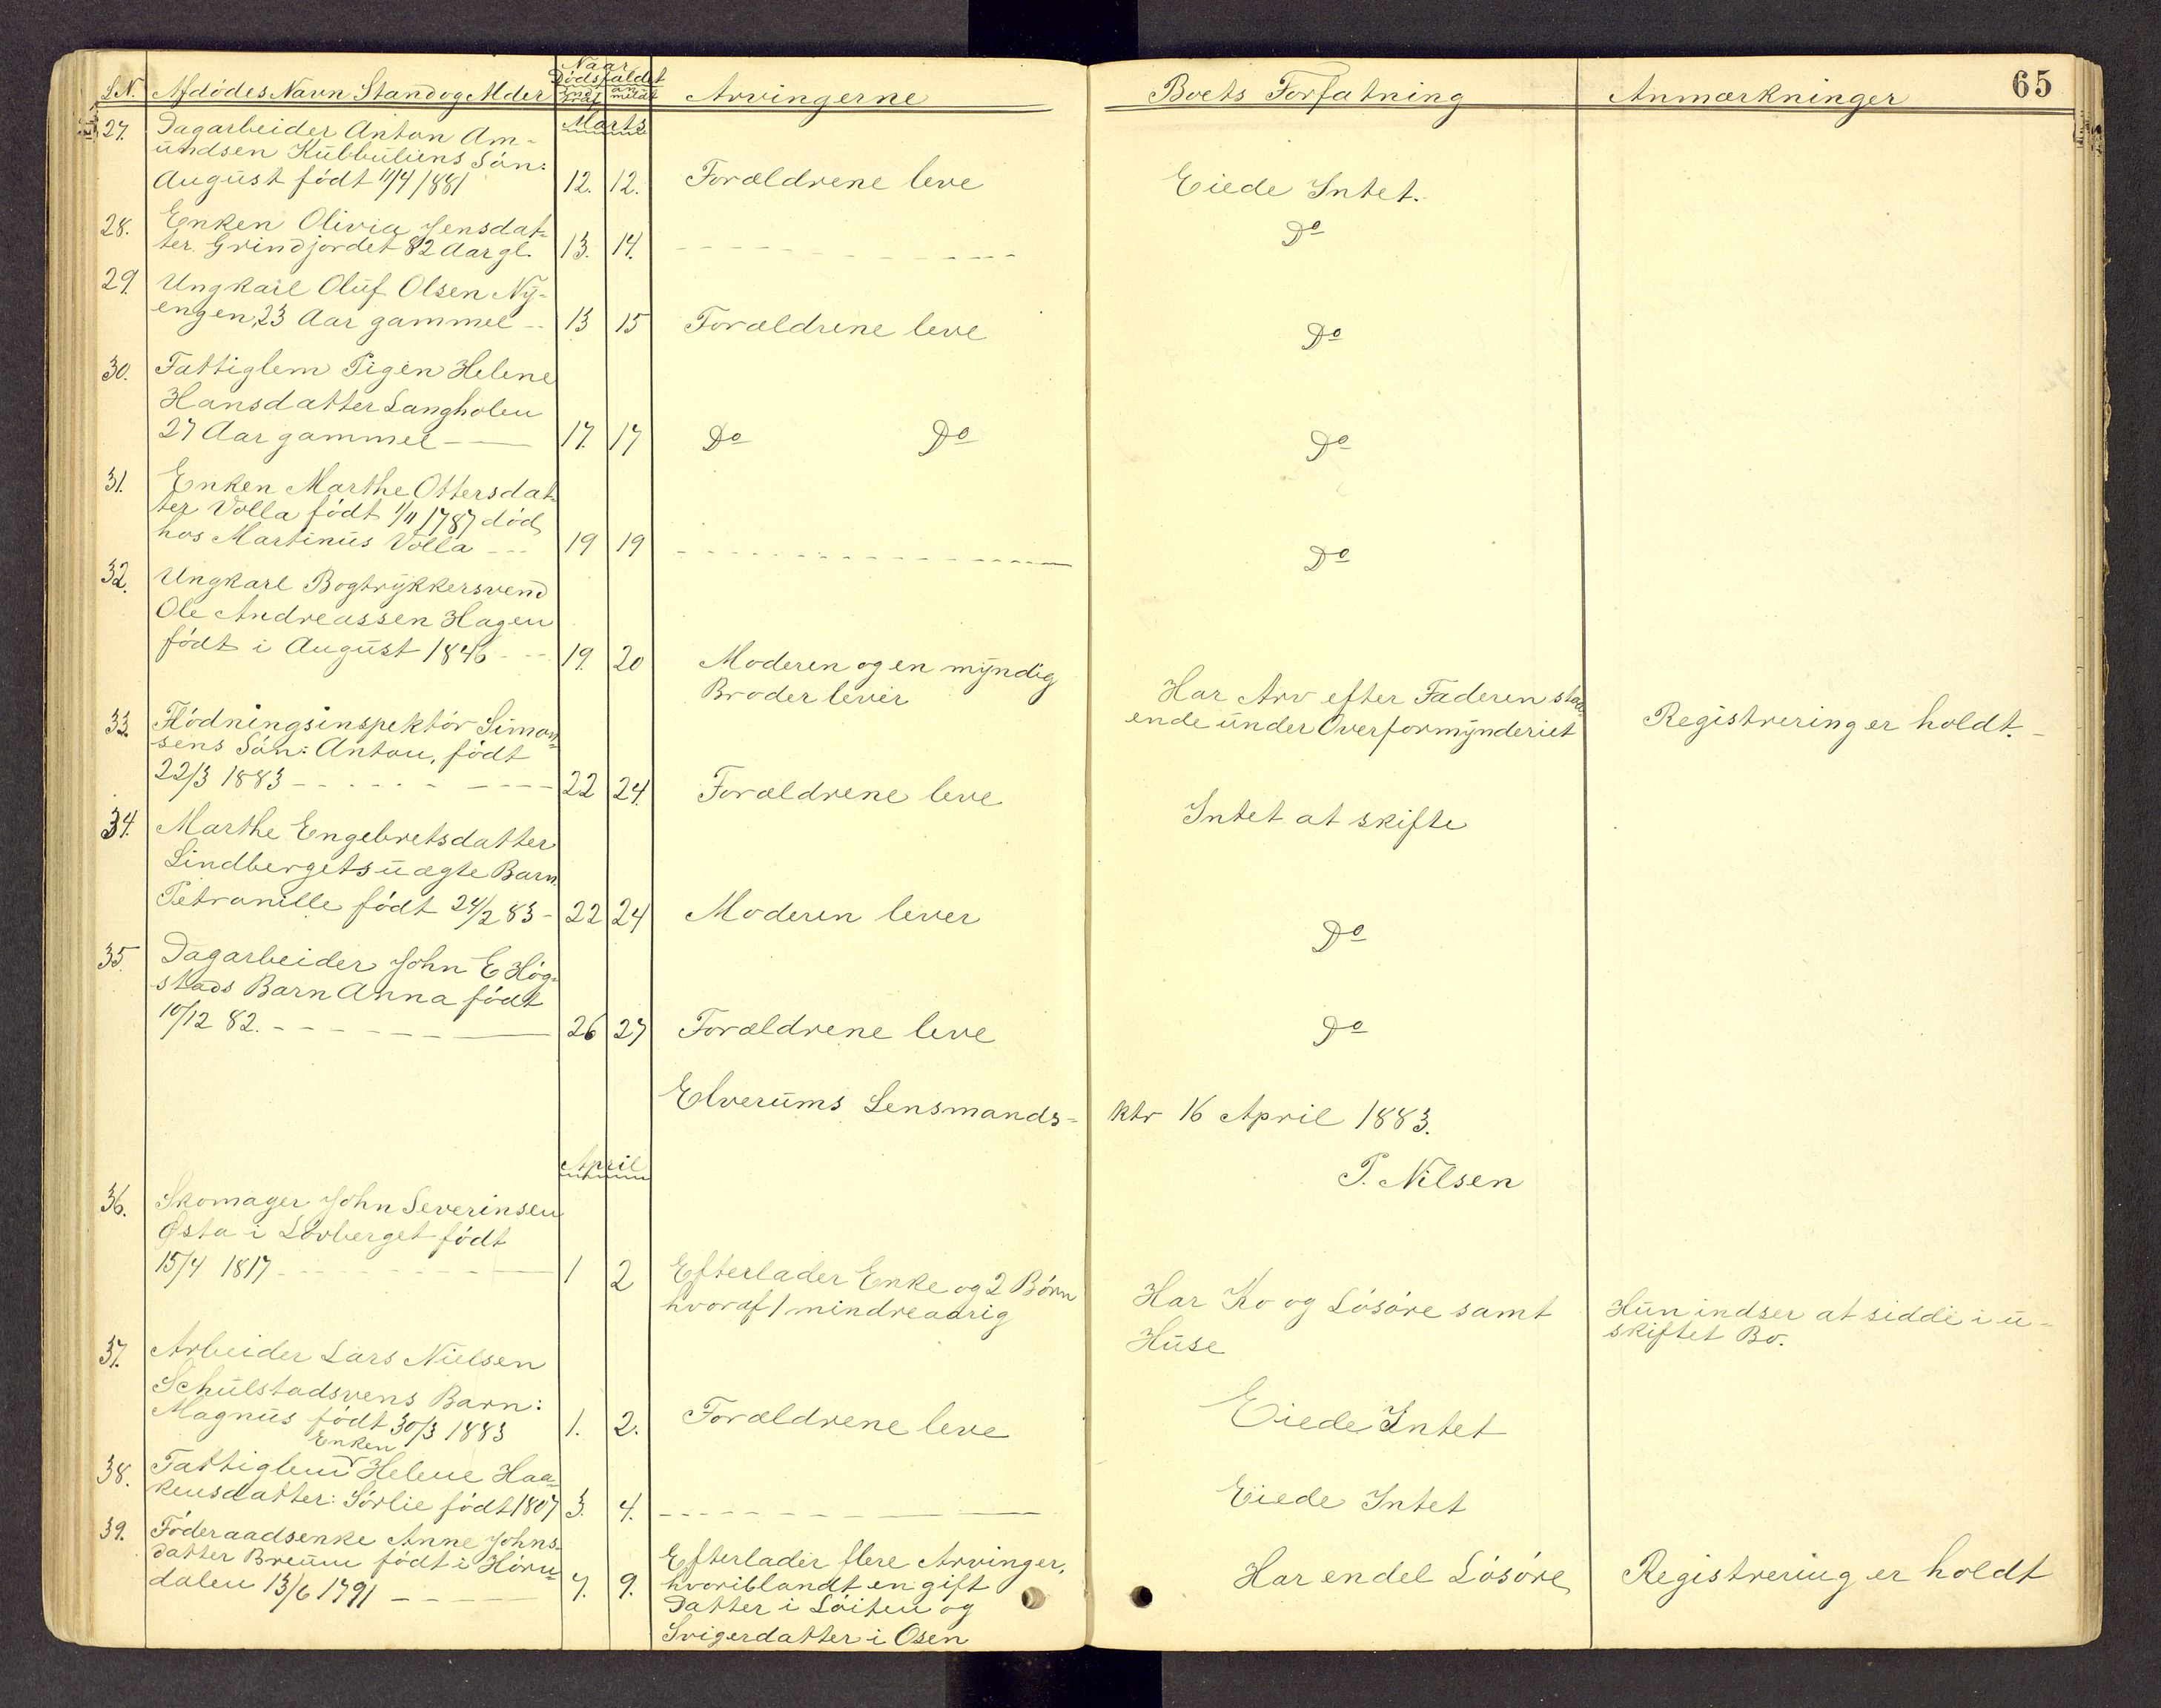 65
L.N. Afdödes Navn Stand og Alder Naar Dödsfaldet indtraf anmeldt Arvingerne Boets Forfatning Anmærkninger
Marts
27. Dagarbeider Anton Am-
undsen Kubbuliens Sön:
August födt 11/4 1881 12. 12. Forældrene leve Eiede Intet.
28. Enken Olivia Jensdat-
ter Grindjordet 82 Aar gl. 13. 14. Do
29. Ungkarl Oluf Olsen Ny-
engen, 23 Aar gammel 13 15 Forældrene leve Do
30. Fattiglem Pigen Helene
Hansdatter Langholen
27 Aar gammel 17. 17 Do Do Do
31. Enken Marthe Ottersdat-
ter Volla födt 1/11 1787 död
hos Martinus Volla 19 19 Do
32. Ungkarl Bogtrykkersvend
Ole Andreassen Hagen
födt i August 1846 19. 20 Moderen og en myndig
Broder lever
Har Arv efter Faderen staa-
ende under Overformynderiet Registrering er holdt.
33. Flödningsinspektör Simon-
sens Sön: Anton, födt
22/3 1883 22 24. Forældrene leve Intet at skifte
34. Marthe Engebretsdatter
Lindbergets uægte Barn
Petronille födt 24/2 83 22 24 Moderen lever Do
35. Dagarbeider John E Hög-
stads Barn Anna födt
10/12 82. 26 27 Forældrene leve Do
Elverums Lensmands- ktr 16 April 1883.
P. Nilsen
April
36. Skomager John Severinsen
Østa i Lövberget födt
15/4 1817 1 2 Efterlader Enke og 2 Börn
hvoraf 1 mindreaarig
Har Ko og Lösöre samt
Huse
Hun indser at sidde i u-
skiftet Bo.
37. Arbeider Lars Nielsen
Schulstadsvens Barn:
Magnus födt 30/3 1883 1. 2. Forældrene leve Eiede Intet
Enken
38. Fattiglem Helene Haa-
kensdatter: Sörlie födt 1807 3. 4. Eiede Intet
39. Föderaadsenke Anne Johns-
datter Breum födt i Höru-
dalen 13/6 1791 7. 9. Efterlader flere Arvinger,
hvoriblandt en gift
Datter i Löiten og
Svigerdatter i Osen
Har endel Lösöre Registrering er holdt